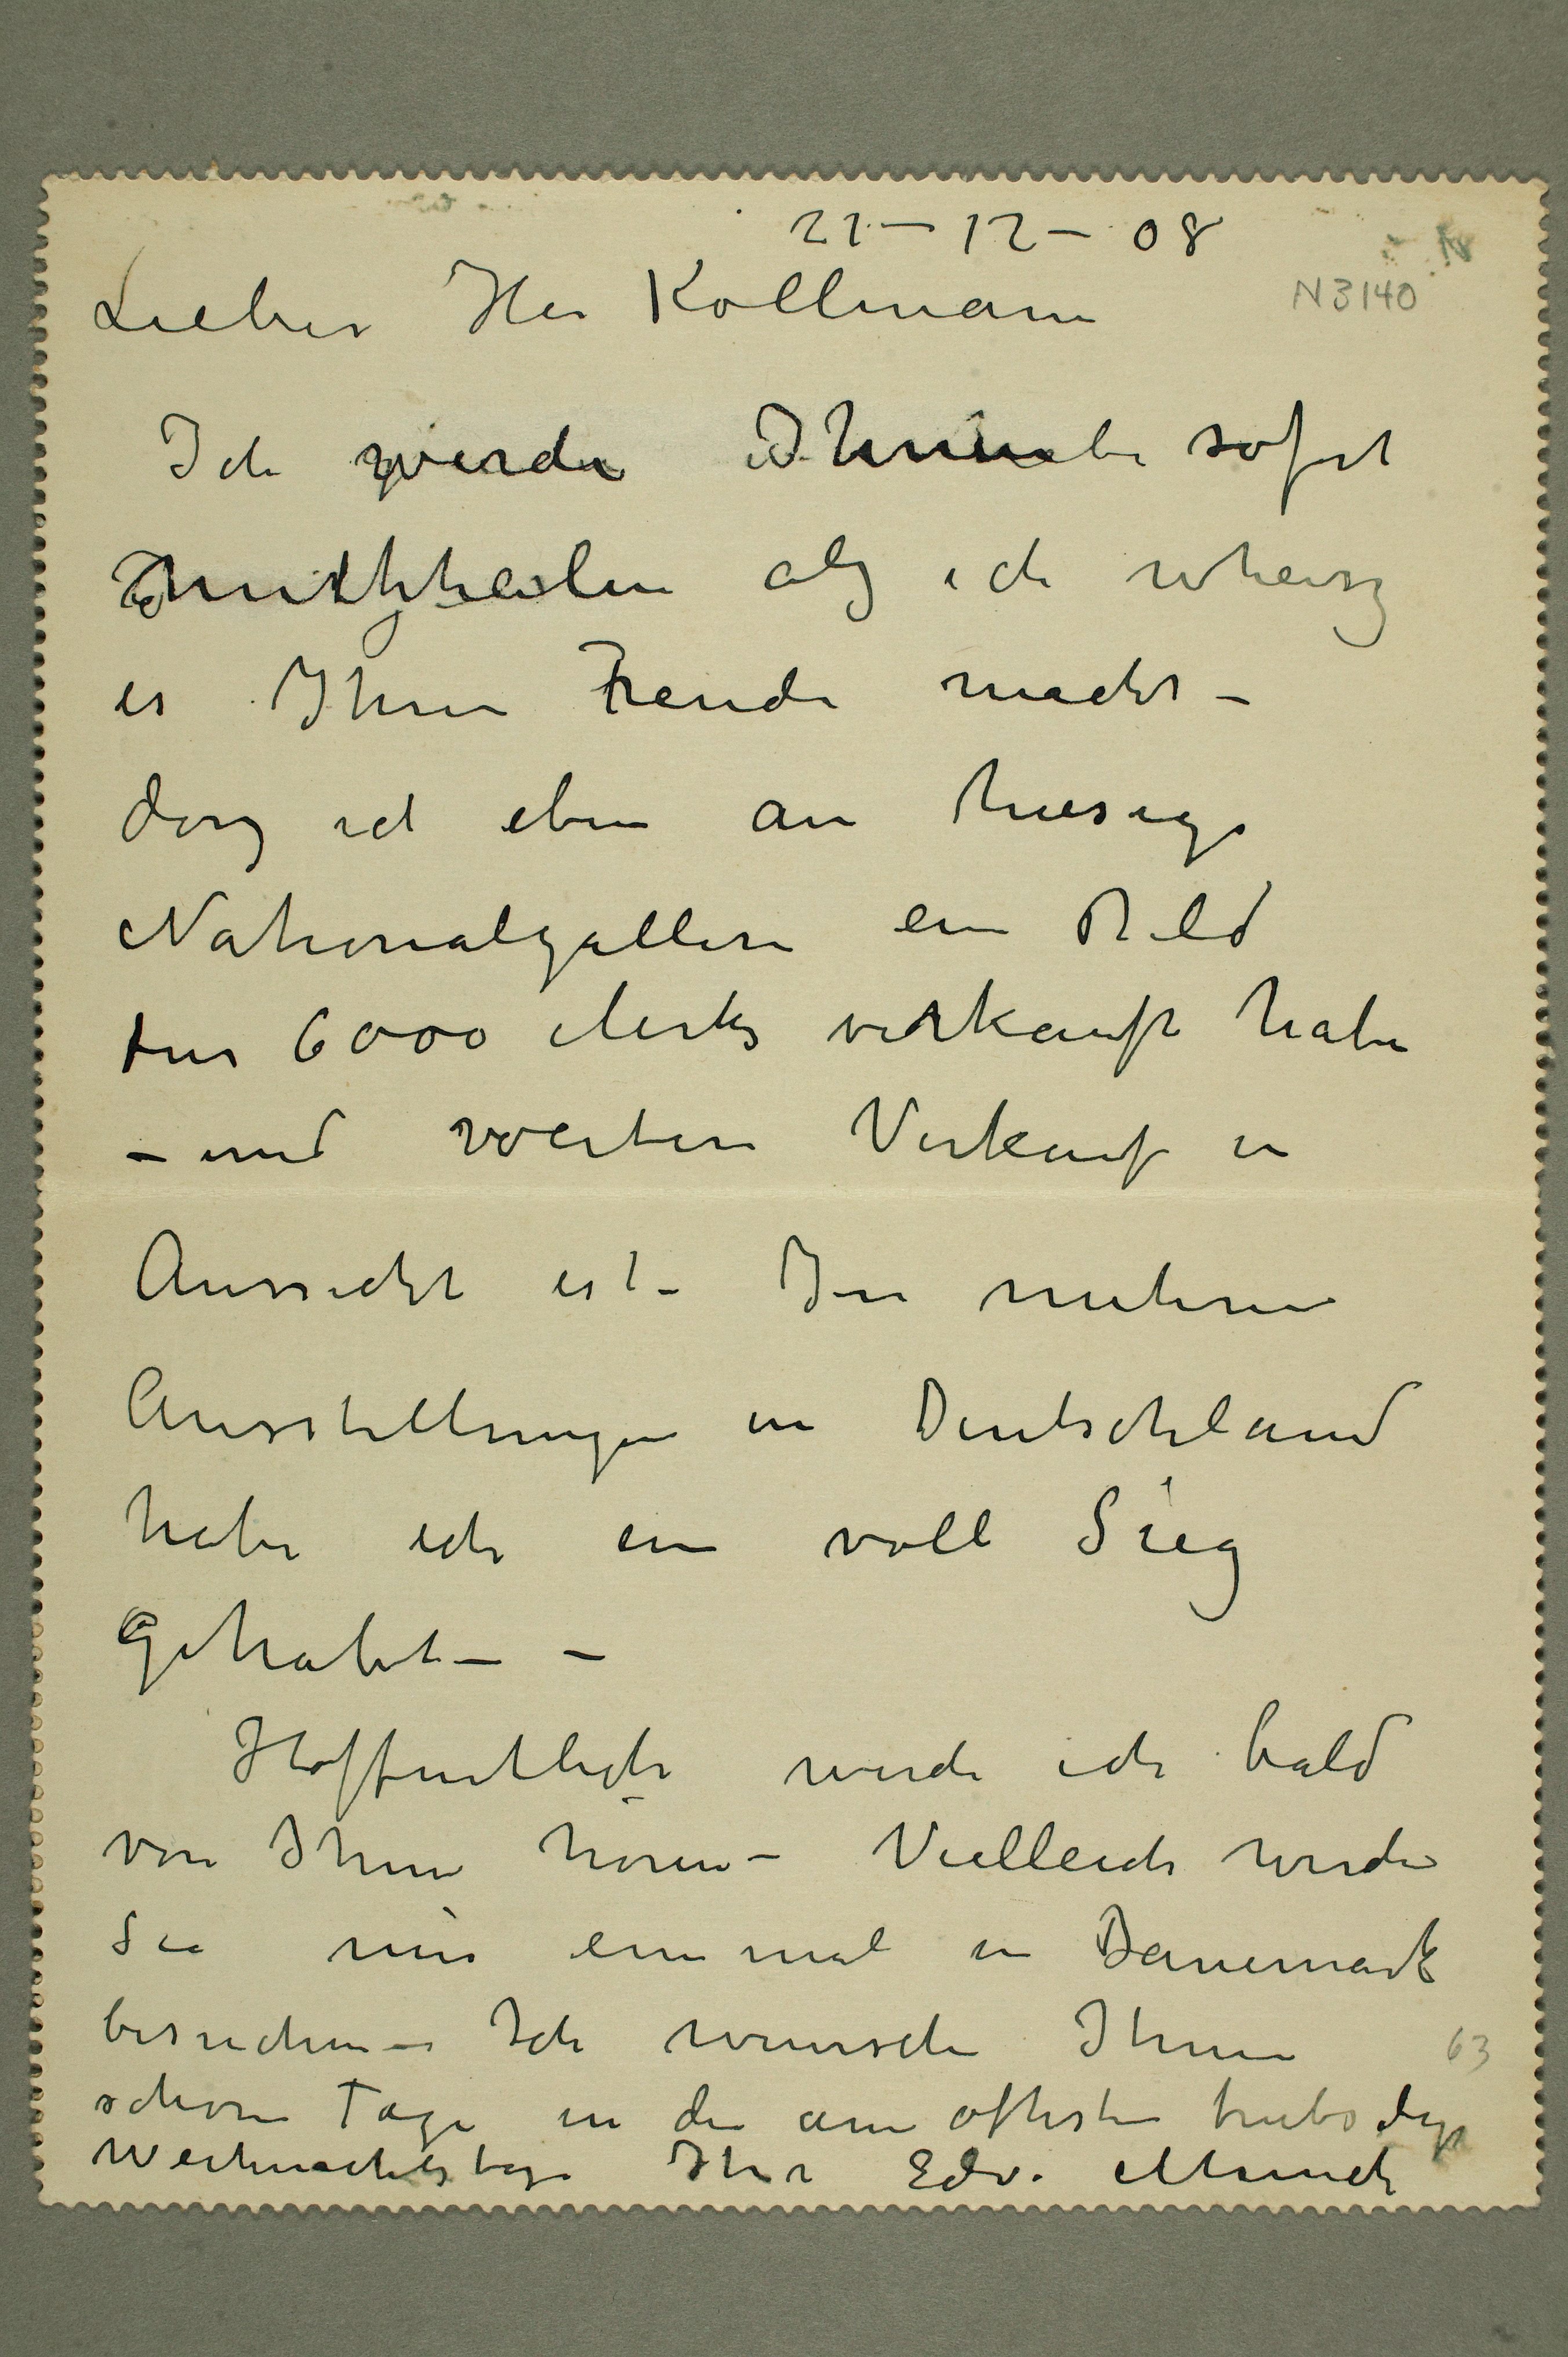 21–12–08
N3140
Lieber Her Kollmann
Ich werde Ihnen sofort
mittheilen als ich wheisz
es Ihnen Freude macht –
dasz ich eben an hiesige
Nationalgallerie ein Bild
fur 6000 Marks verkauft habe
– und weitere Verkauf in
Aussicht ist – In mehrere
Ausstellungen in Deutschland
habe ich ein voll Sieg
gehabt – –
Hoffentlich werde ich bald
von Ihnen hören – Vielleich werde
Sie mir einmal in Danemark
besuchen – Ich wünsche Ihnen
63
schöne Tage in die am oftesten
Weihnachtstage Ihr Edv. Munch